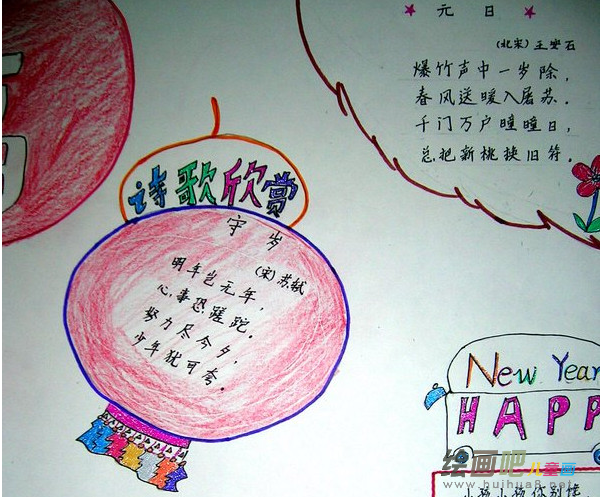 ★ 元 日 ★
(北宋) 王安石
爆竹声中一岁除，
春风送暖入屠苏。
千门万户曈曈日，
总把新桃换旧符。
诗歌欣赏
守 岁
(宋) 苏轼
明年岂无年，
心事恐蹉跎。
努力尽今夕，
少年犹可夸。
New Year
HAPP
小孩小孩你别馋
绘画吧 儿童画
www.huihua8.net